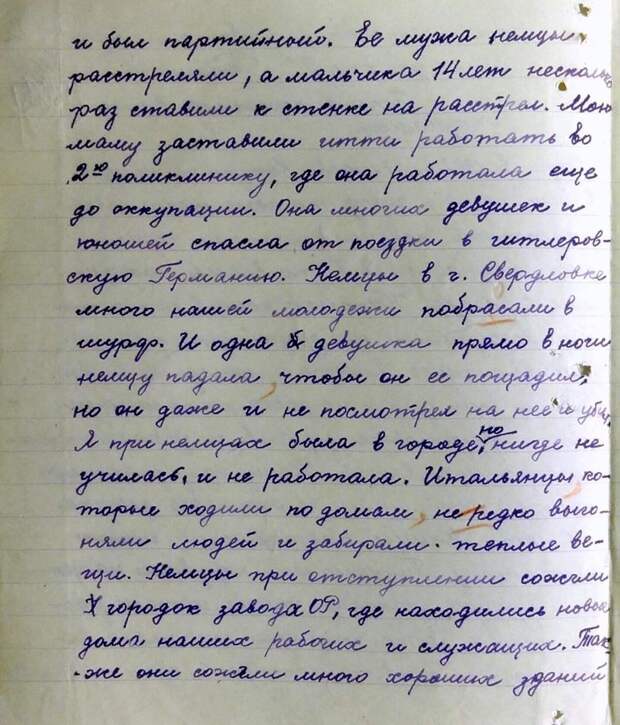 и был партийной. Ее мужа немцы
расстреляли, а мальчика 14 лет несколько
раз ставили к стенке на расстрел. Мою
маму заставили итти работать во
2-ю поликлинику, где она работала еще
до оккупации. Она многих девушек и
юношей спасла от поездки в гитлеров-
скую Германию. Немцы в г. Свердловке
много нашей молодежи побрасали в
шурф. И одна девушка прямо в ноги
немцу падала, чтобы он ее пощадил,
но он даже и не посмотрел на нее и убил.
Я при немцах была в городе, но нигде не
училась, и не работала. Итальянцы, ко-
торые ходили по домам, не редко выго-
няли людей и забирали теплые ве-
щи. Немцы при отступлении сожгли
X городок завода ОР, где находились новые
дома наших рабочих и служащих. Так-
же они сожгли много хороших зданий